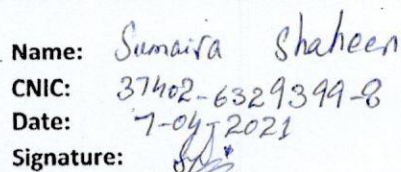 Name: Sumaira Shaheen
CNIC: 37402-6329399-8
Date: 7-04-2021
Signature: